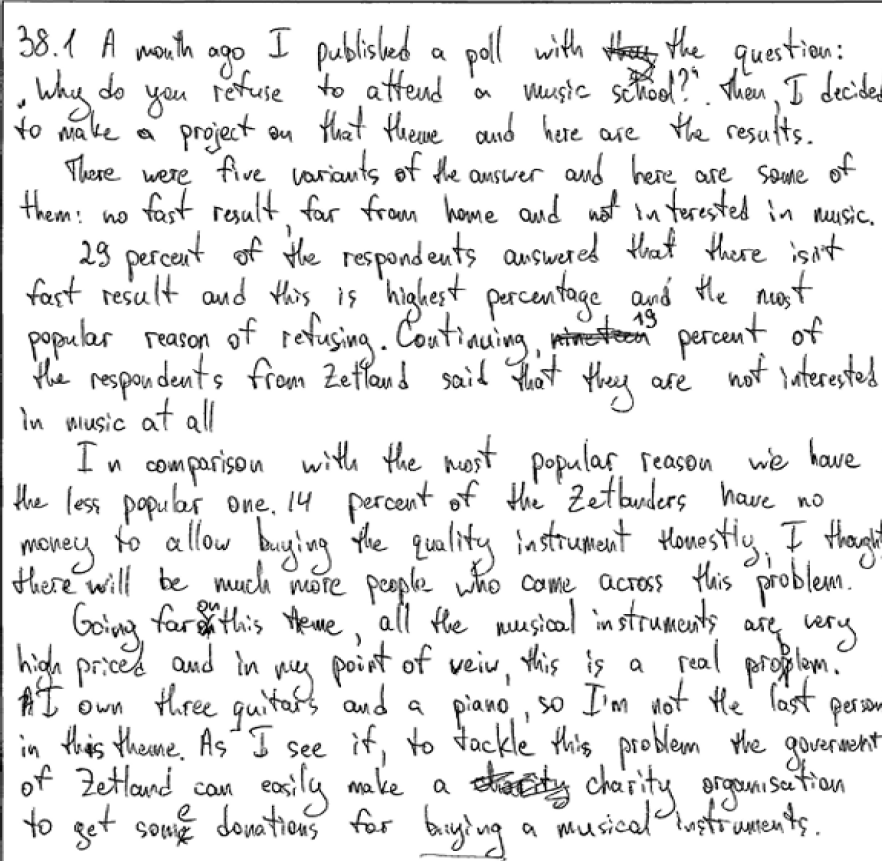 38.1 A month ago I published a poll with the question:
„Why do you refuse to attend a music school?“. Then, I decided
to make a project on that theme and here are the results.
There were five variants of the answer and here are some of
them: no fast result, far from home and not interested in music.
29 percent of the respondents answered that there isn't
fast result and this is highest percentage and the most
popular reason of refusing. Continuing, 19 percent of
the respondents from Zetland said that they are not interested
in music at all
In comparison with the most popular reason we have
the less popular one. 14 percent of the Zetlanders have no
money to allow buying the quality instrument Honestly, I thought
there will be much more people who came across this problem.
Going far on this theme, all the musical instruments are very
high priced and in my point of veiw, this is a real problem.
I own three guitars and a piano, so I'm not the last person
in this theme. As I see it, to tackle this problem the goverment
of Zetland can easily make a charity organisation
to get some donations for buying a musical instruments.